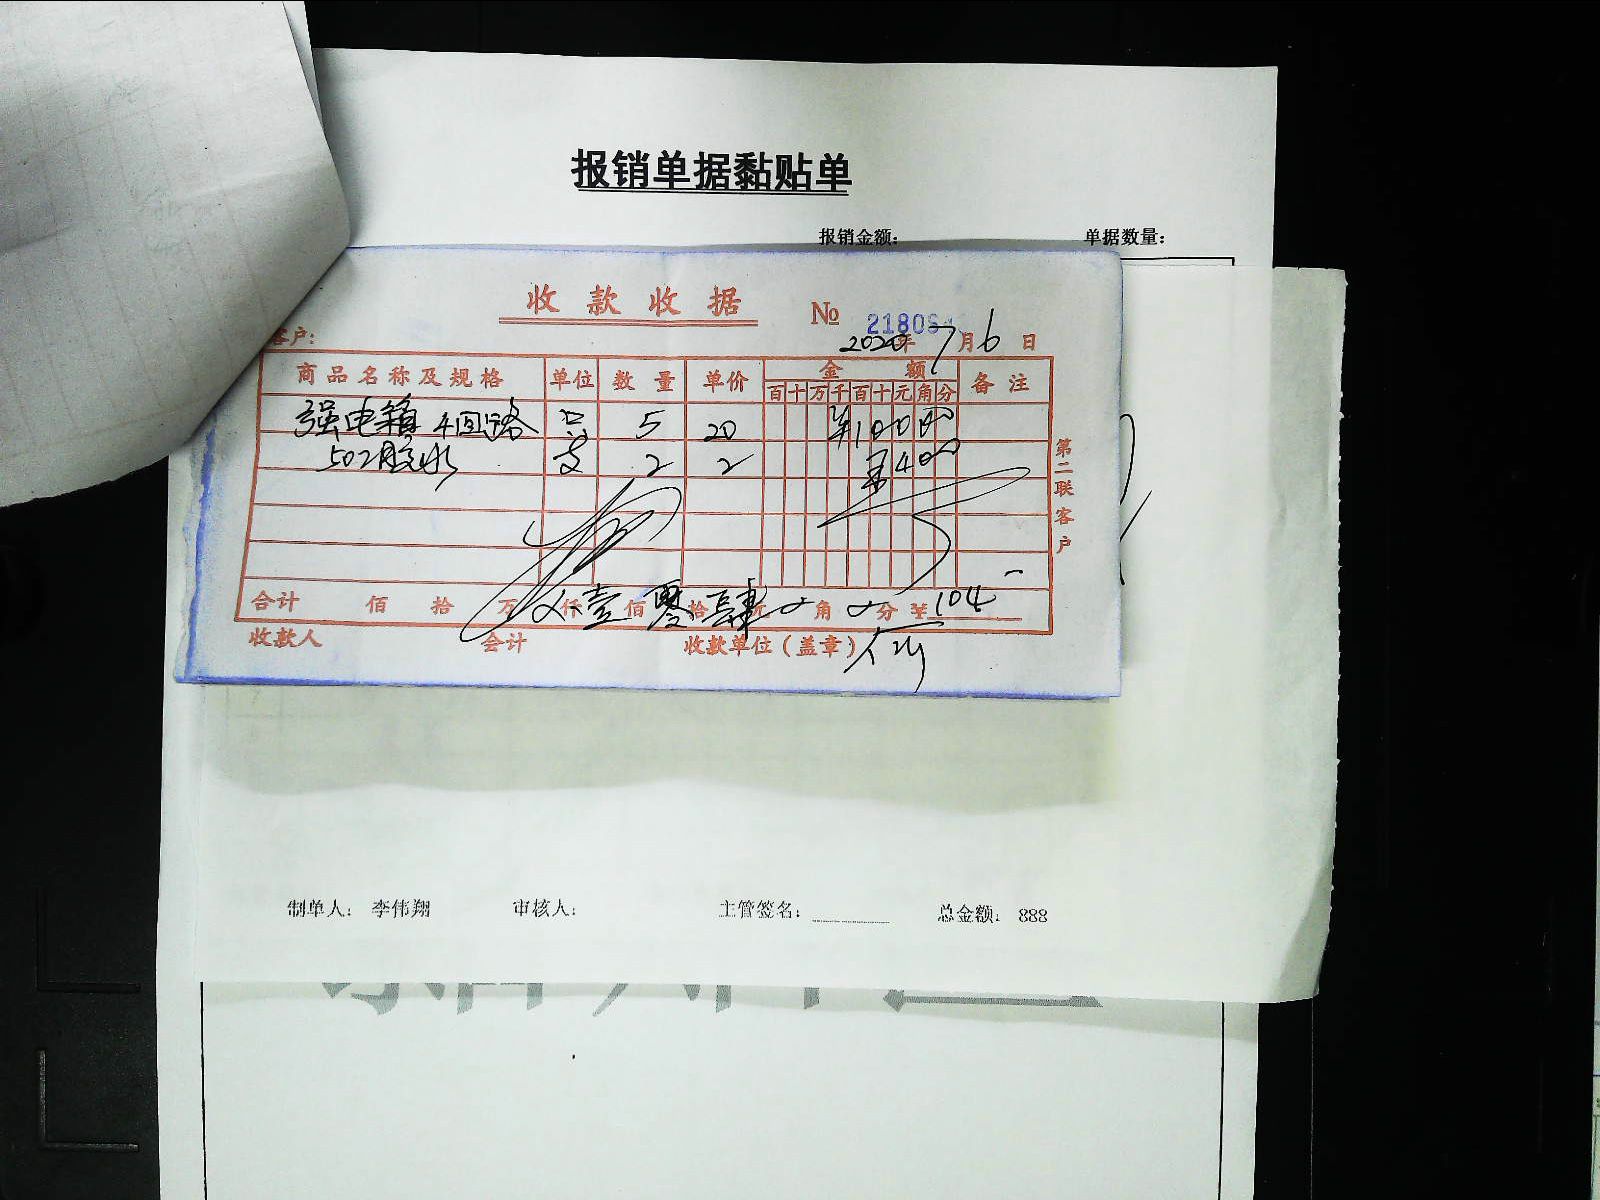 报销单据黏贴单
报销金额： 单据数量：
收款收据 № 21809
客户： 2020年7月6日
商品名称及规格 单位 数量 单价 金额 备注
百十万千百十元角分
强电箱 4回路 只 5 20 ¥10000
502胶水 支 2 2 ¥400
第二联客户
合计 佰 拾 万 仟 壹 佰 零 拾 肆 元 0 角 0 分 ¥ 104
收款人 会计 收款单位（盖章）
制单人： 李伟翔 审核人： 主管签名： 总金额： 888